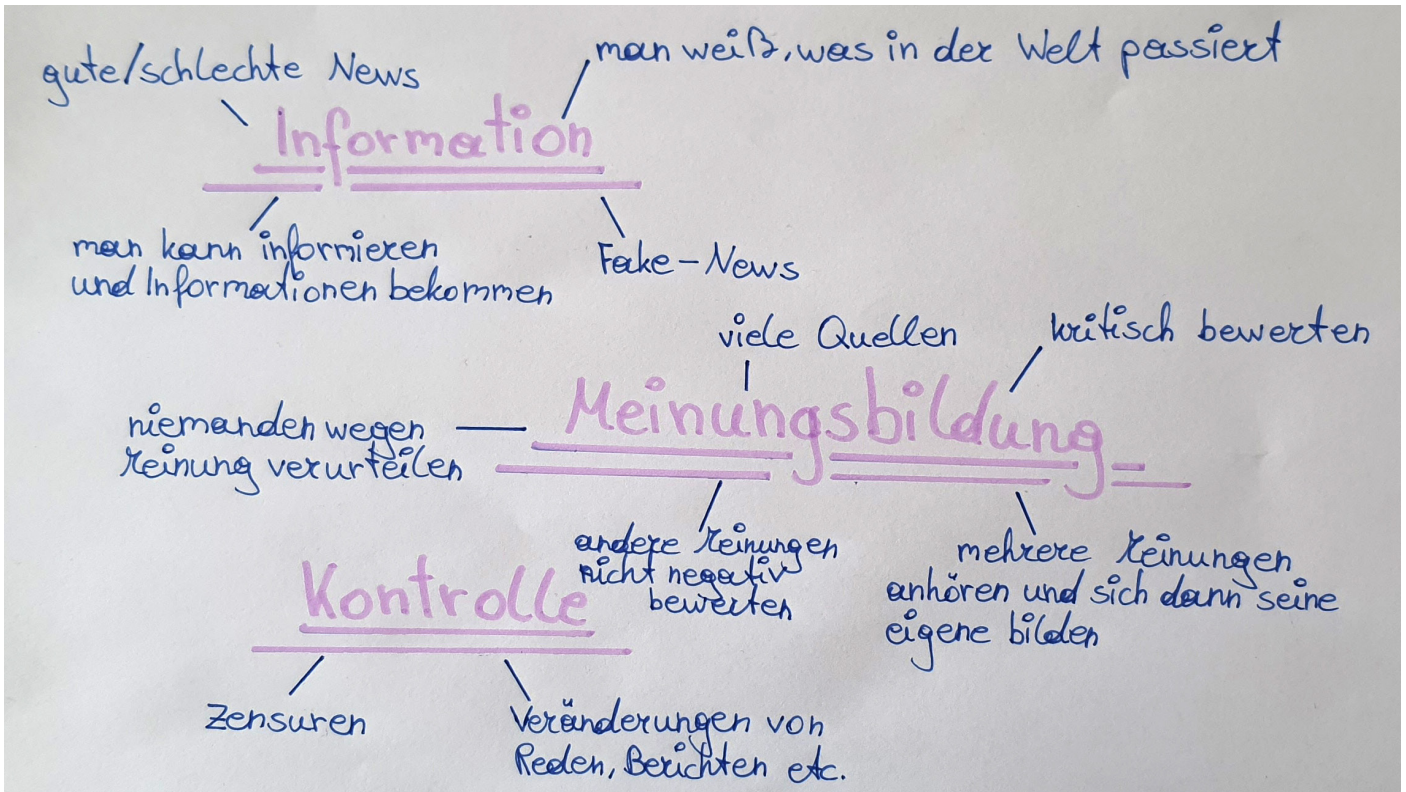 gute/schlechte News
man weiß, was in der Welt passiert
Information
man kann informieren
und Informationen bekommen
Fake-News
viele Quellen
kritisch bewerten
Meinungsbildung
niemanden wegen
Meinung verurteilen
andere Meinungen
nicht negativ
bewerten
mehrere Meinungen
anhören und sich dann seine
eigene bilden
Kontrolle
Zensuren
Veränderungen von
Reden, Berichten etc.